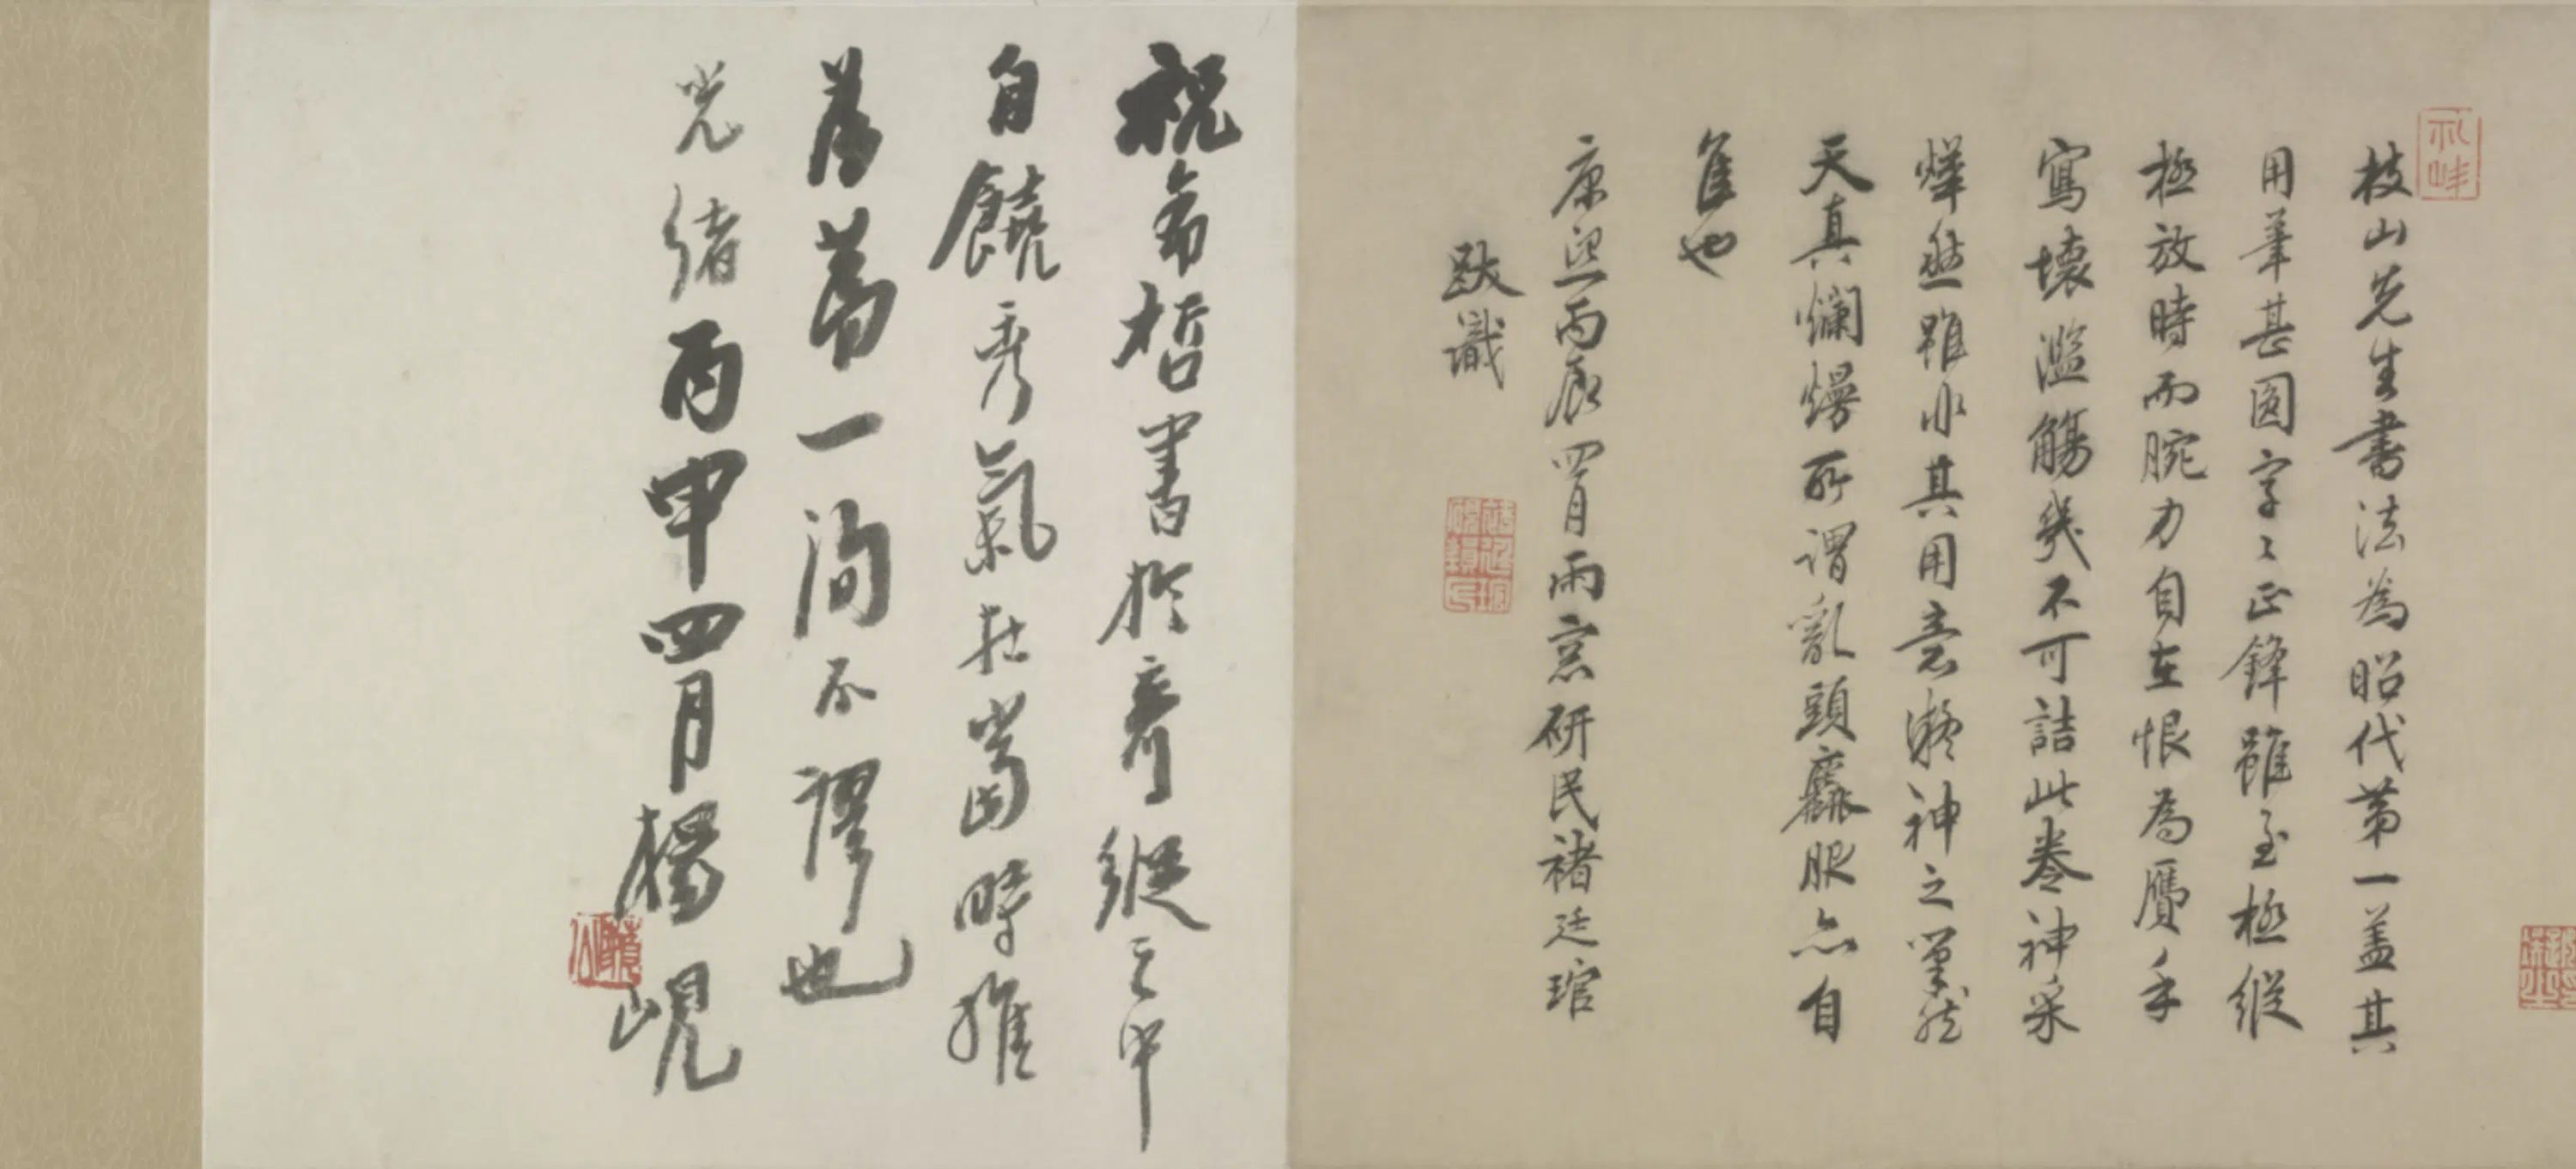 枝山先生書法為昭代第一蓋其
用筆甚圓字〻正鋒雖至極縱
極放時而腕力自在恨為贋手
寫壞濫觴幾不可詰此卷神采
燁然雖非其用意凝神之筆然
天真爛熳所謂亂頭麤服亦自
佳也
康熙丙辰四月雨窓研民褚廷琯
跋識
祝希哲書於奇縱之中
自饒秀氣在當時推
為第一洵不謬也
光緒丙申四月楊峴